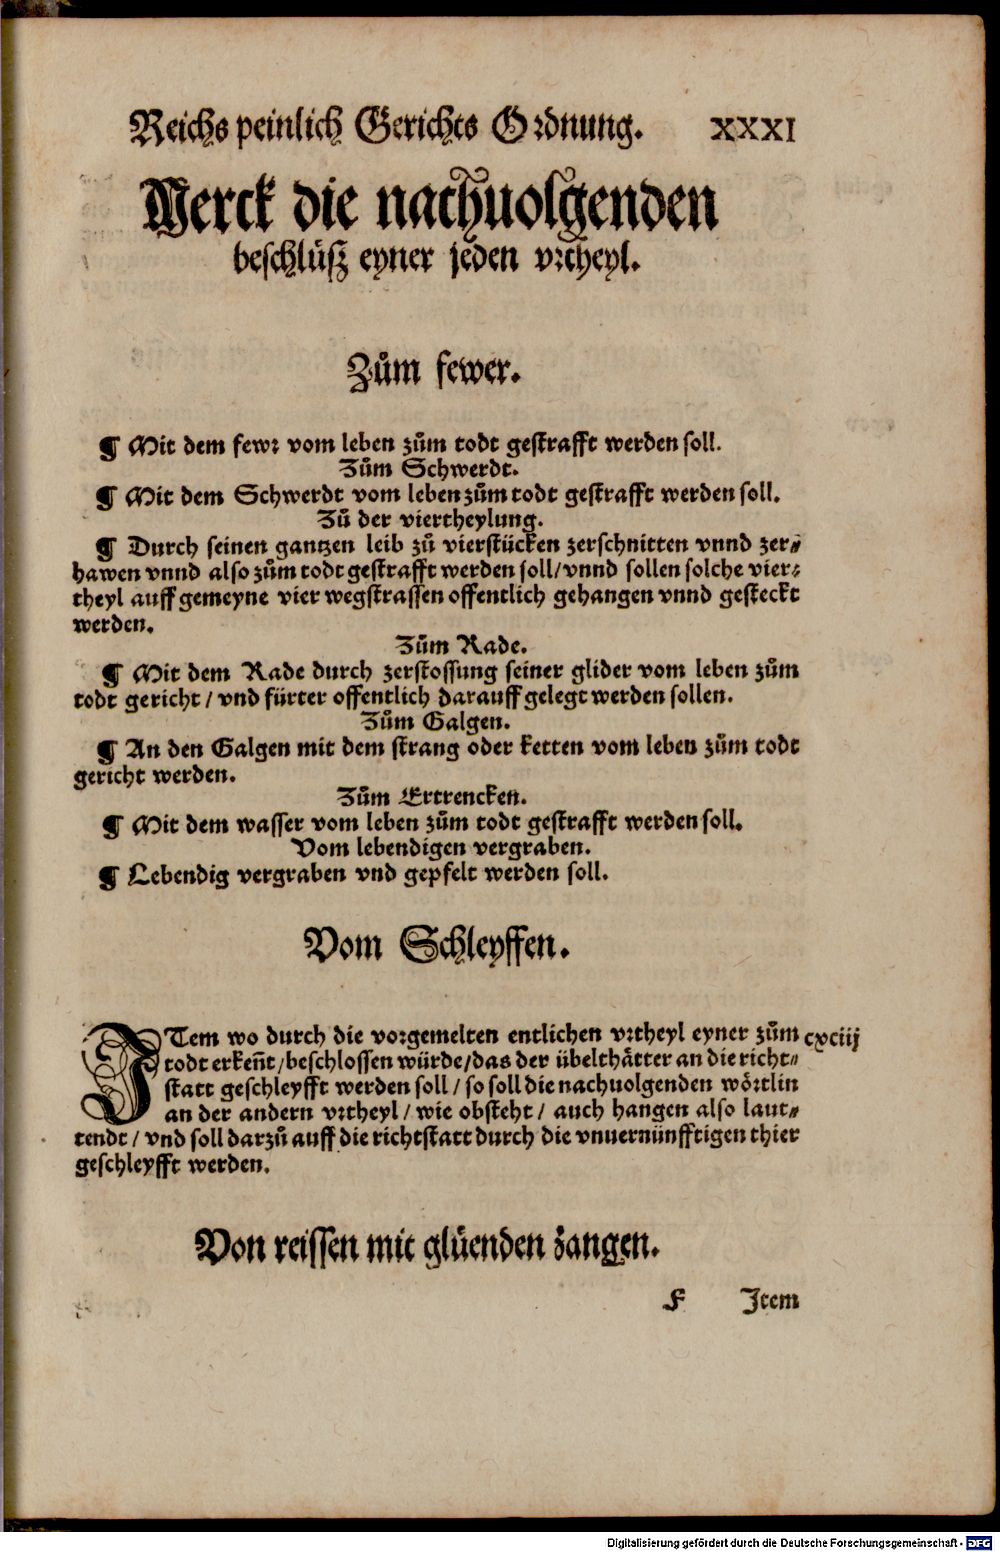 Reichs peinlich Gerichts Ordnung. XXXI
Merck die nachuolgenden
beschlüß eyner jeden vrtheyl.
Zům fewer.
¶ Mit dem fewr vom leben zům todt gestrafft werden soll.
Zům Schwerdt.
¶ Mit dem Schwerdt vom leben zům todt gestrafft werden soll.
Zů der viertheylung.
¶ Durch seinen gantzen leib zů vierstücken zerschnitten vnnd zer⸗
hawen vnnd also zům todt gestrafft werden soll/ vnnd sollen solche vier⸗
theyl auff gemeyne vier wegstrassen offentlich gehangen vnnd gesteckt
werden.
Zům Rade.
¶ Mit dem Rade durch zerstossung seiner glider vom leben zům
todt gericht/ vnd fürter offentlich darauff gelegt werden sollen.
Zům Galgen.
¶ An den Galgen mit dem strang oder ketten vom leben zům todt
gericht werden.
Zům Ertrencken.
¶ Mit dem wasser vom leben zům todt gestrafft werden soll.
Vom lebendigen vergraben.
¶ Lebendig vergraben vnd gepfelt werden soll.
Vom Schleyffen.
ITem wo durch die vorgemelten entlichen vrtheyl eyner zům cxciij
todt erkeñt/ beschlossen würde/ das der übelthätter an die richt⸗
statt geschleyfft werden soll/ so soll die nachuolgenden wörtlin
an der andern vrtheyl/ wie obsteht/ auch hangen also laut⸗
tendt/ vnd soll darzů auff die richtstatt durch die vnuernünfftigen thier
geschleyfft werden.
Von reissen mit glüenden zangen.
F Item
Digitalisierung gefördert durch die Deutsche Forschungsgemeinschaft - DFG